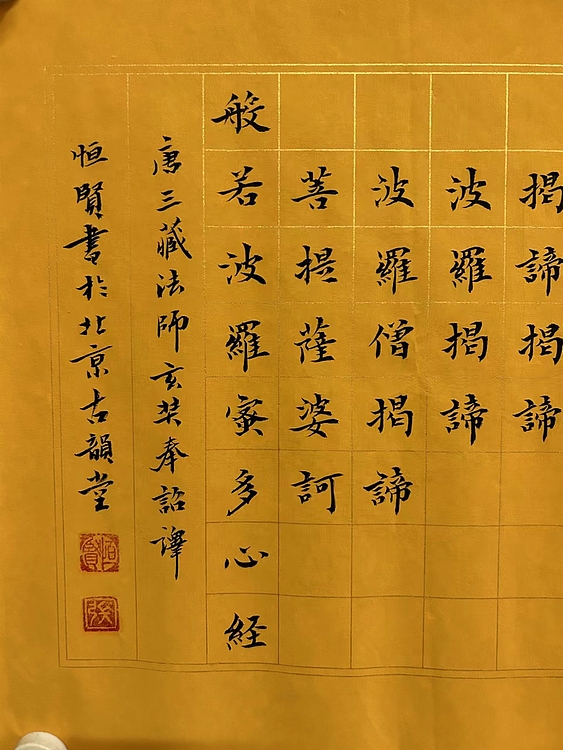 揭諦揭諦
波羅揭諦
波羅僧揭諦
菩提薩婆訶
般若波羅蜜多心経
唐三藏法師玄奘奉詔譯
恒賢書於北京古韻堂